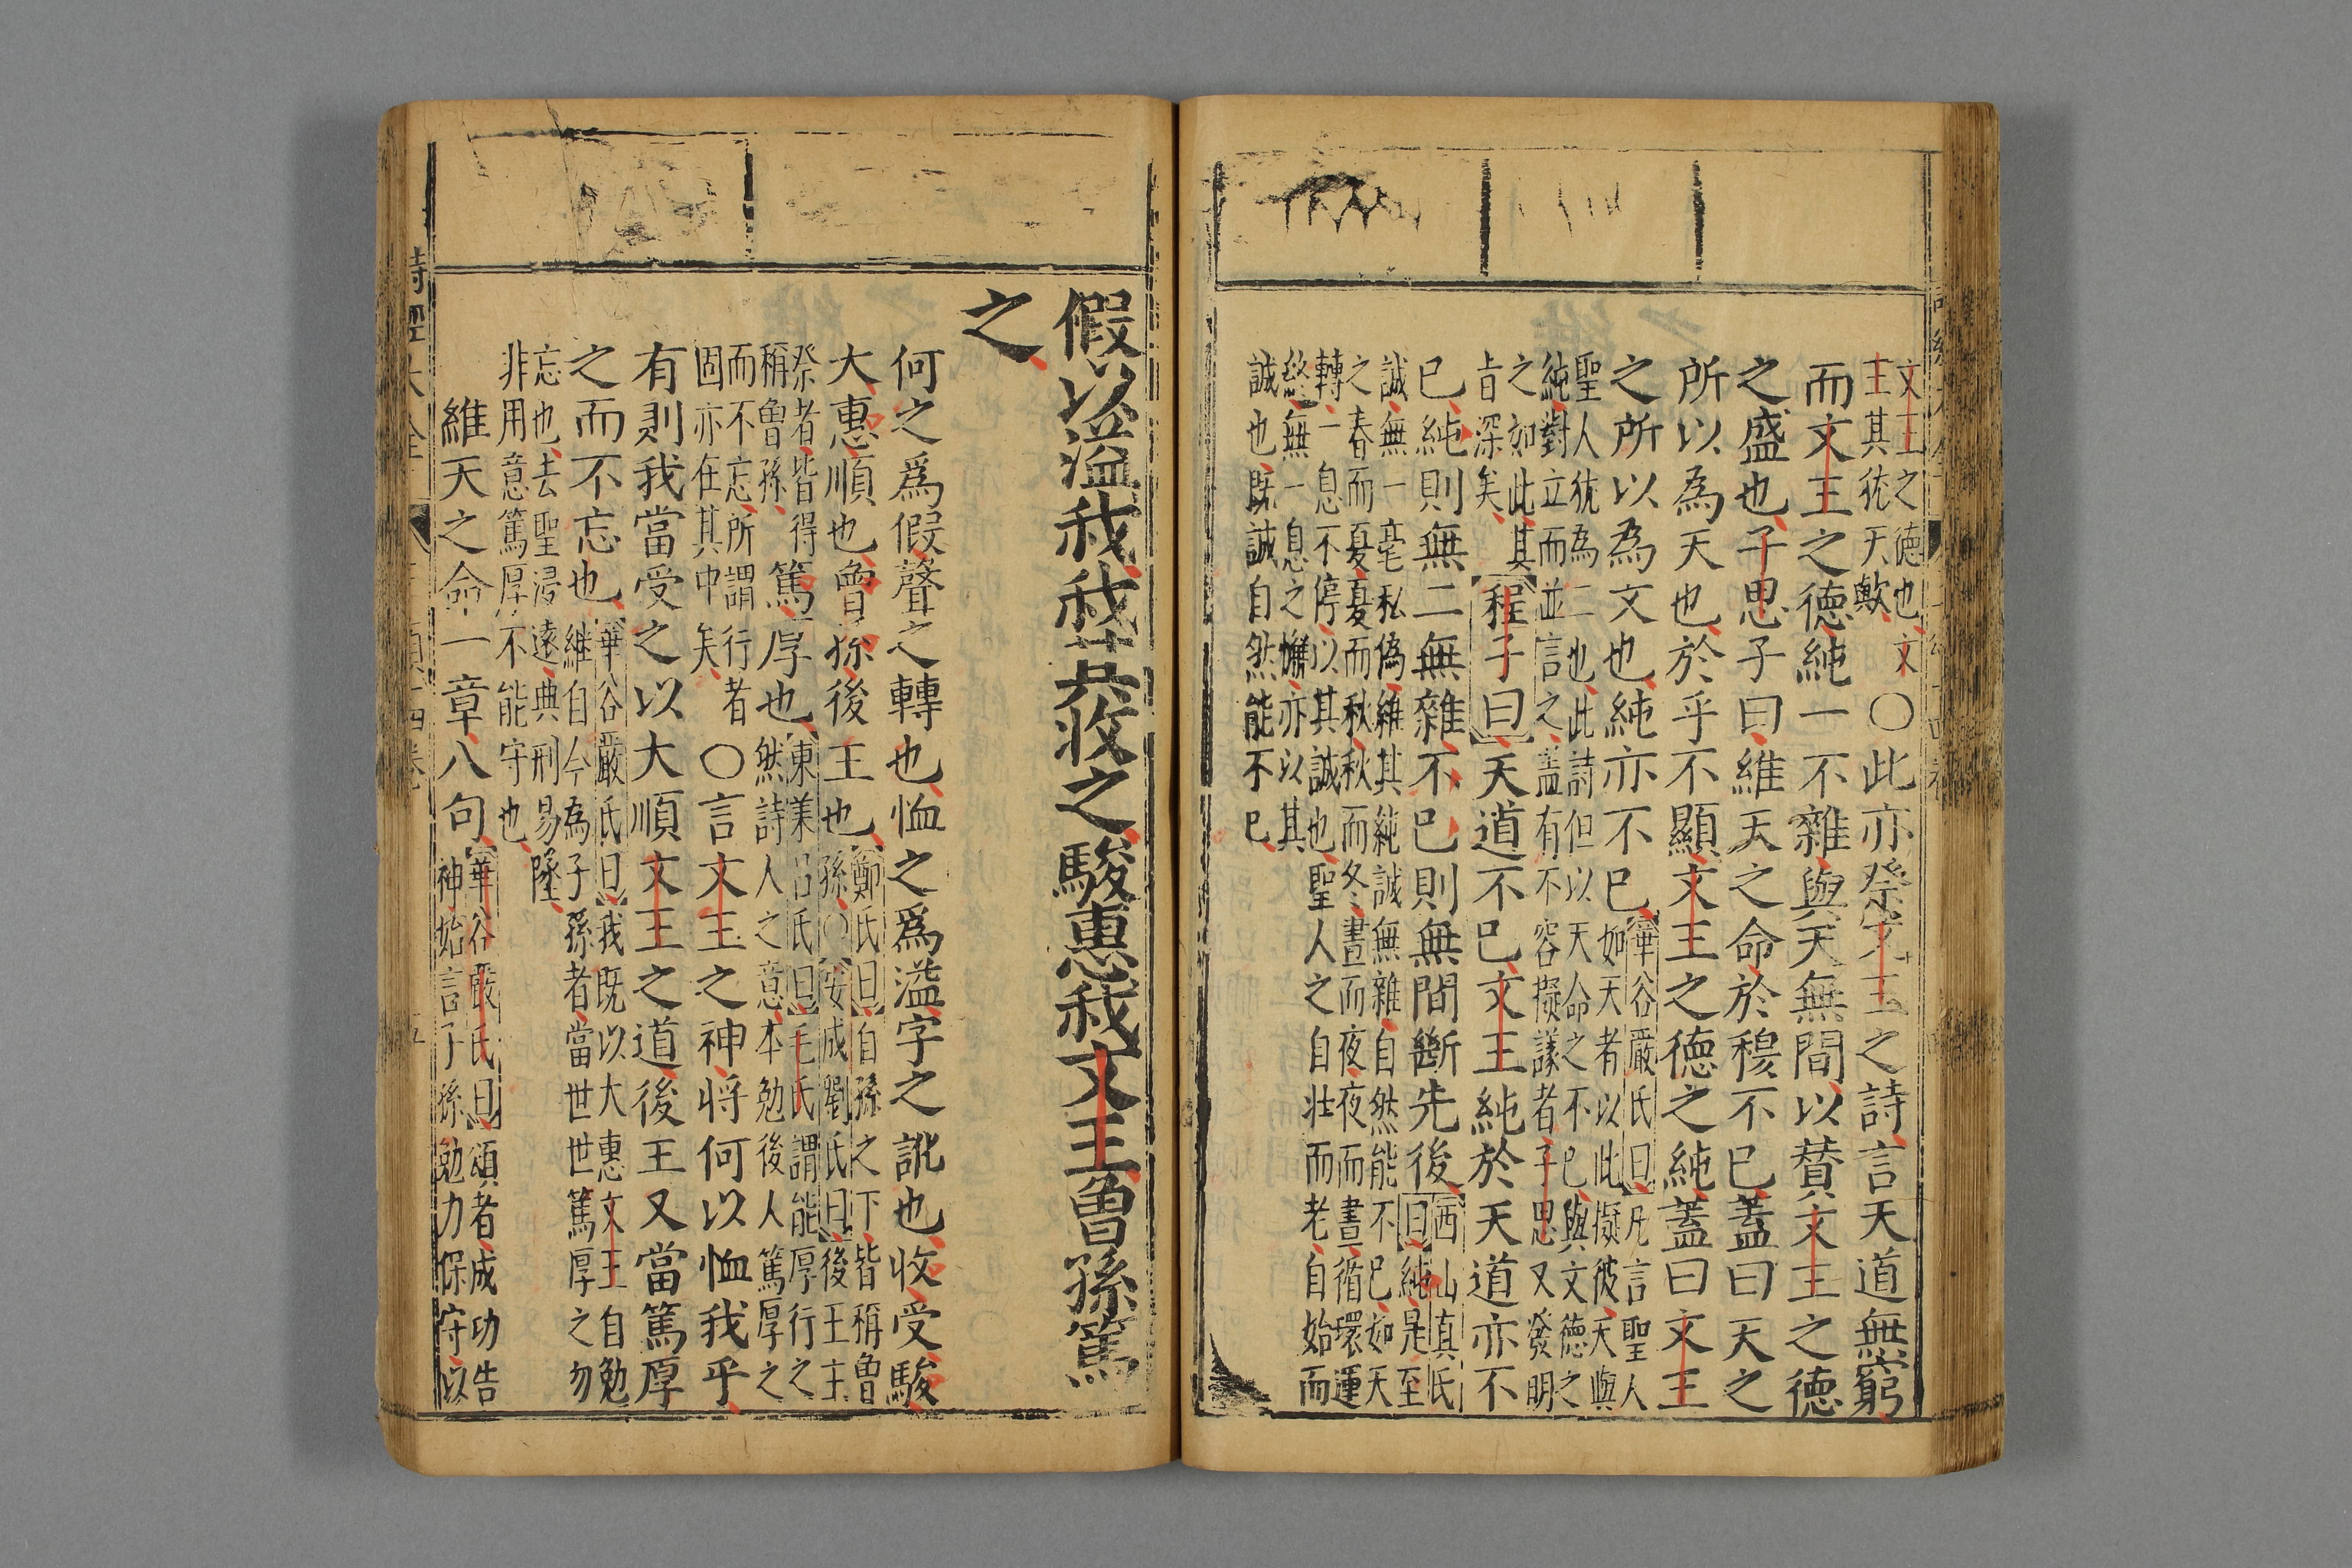 文王之德也文
王其犹天歟
〇此亦祭文王之詩言天道無窮
而文王之德純一不雜與天無間以賛文王之德
之盛也子思子曰維天之命於穆不已蓋曰天之
所以為天也於乎不顯文王之德之純蓋曰文王
之所以為文也純亦不已
華谷嚴氏曰凡言聖人
如天者以此擬彼天與
聖人犹為二也此詩但以天命之不已與文德之
純對立而並言之蓋有不容擬議者子思又發明
之如此其
旨深矣
程子曰天道不已文王純於天道亦不
已純則無二無雜不已則無間斷先後
西山真氏
曰純是至
誠無一毫私偽維其純誠無雜自然能不已如天
之春而夏夏而秋秋而冬晝而夜夜而晝循環運
轉一息不停以其誠也聖人之自壯而老自始而
終無一息之懈亦以其
誠也既誠自然能不已
假以溢我我其收之駿惠我文王曾孫篤
之
何之爲假聲之轉也恤之爲溢字之訛也收受駿
大惠順也曾孫後王也
鄭氏曰自孫之下皆稱曾
孫〇安成劉氏曰後王主
祭者皆得
稱曾孫
篤厚也
東萊呂氏曰毛氏謂能厚行之
然詩人之意本勉後人篤厚之
而不忘所謂行者
固亦在其中矣
〇言文王之神将何以恤我乎
有則我當受之以大順文王之道後王又當篤厚
之而不忘也
華谷嚴氏曰我既以大惠文王自勉
維自今為子孫者當世世篤厚之勿
忘也去聖浸遠典刑易墜
非用意篤厚不能守也
維天之命一章八句
華谷嚴氏曰頌者成功告
神始言子孫勉力保守以